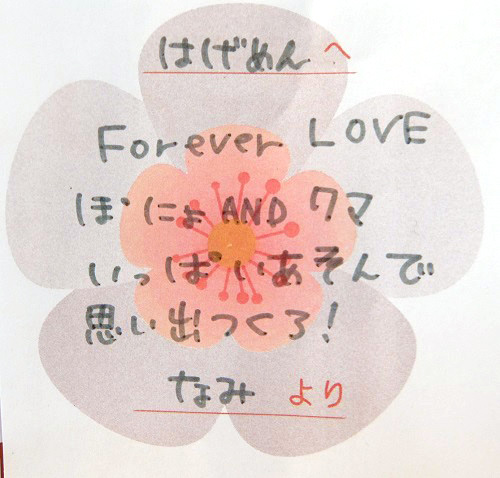 はげめん へ
Forever LOVE
ぽにょ AND クマ
いっぱいあそんで
思い出つくろ！
なみ より